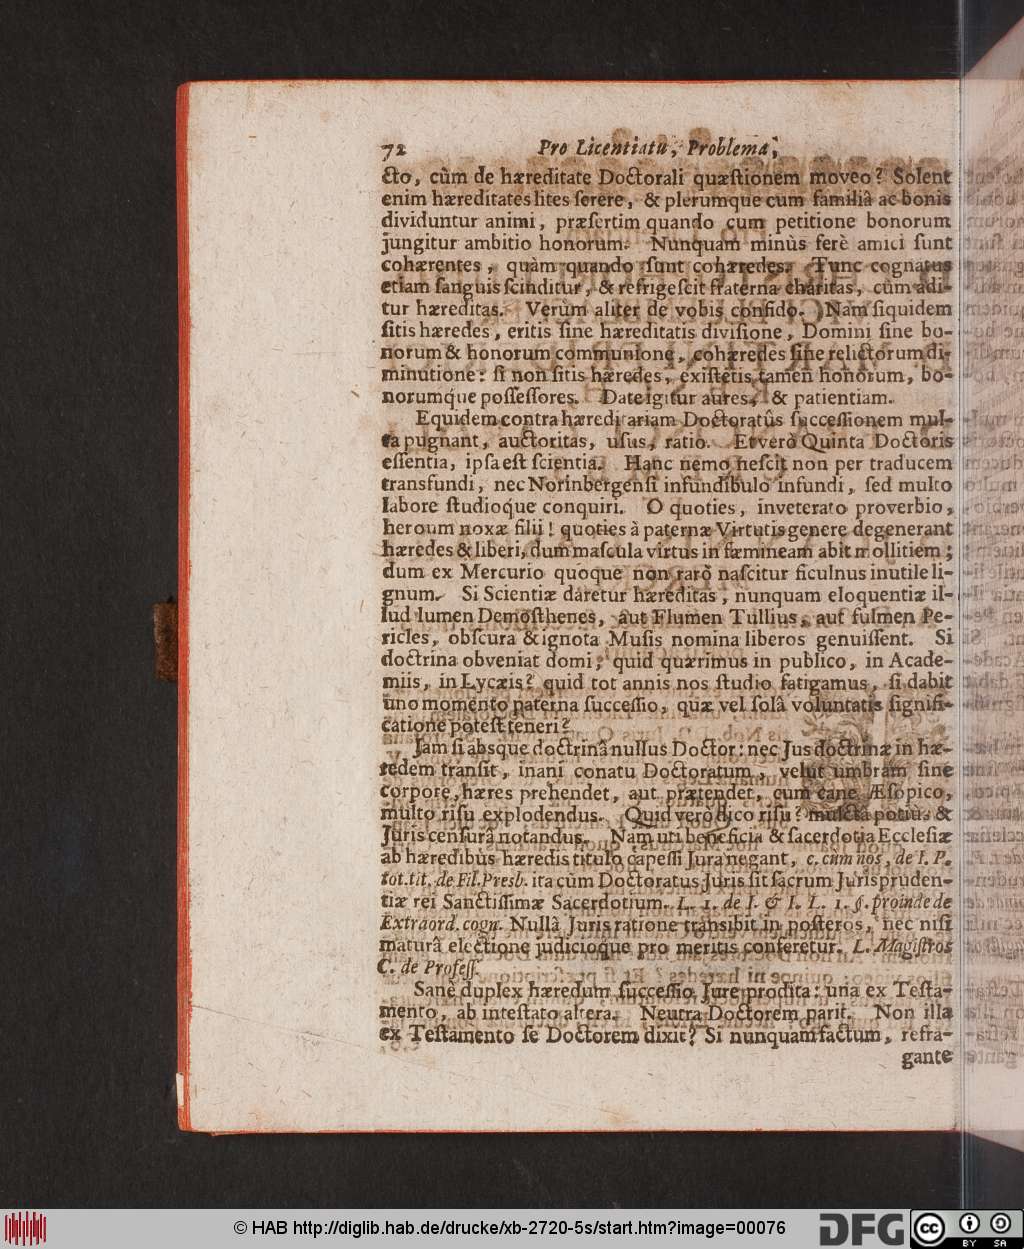 72 Pro Licentiatu, Problema,
cto, cûm de hæreditate Doctorali quæſtionem moveo? Solent
enim hæreditates lites ſerere, & plerumque cum familiâ ac bonis
dividuntur animi, præſertim quando cum petitione bonorum
jungitur ambitio honorum. Nunquam minùs ferè amici ſunt
cohærentes, quàm quando ſunt cohæredes. Tunc cognatus
etiam ſanguis ſcinditur, & refrigeſcit fraterna charitas, cûm adi-
tur hæreditas. Verùm aliter de vobis confido. Nam ſiquidem
ſitis hæredes, eritis ſine hæreditatis diviſione, Domini ſine bo-
norum & honorum communione, cohæredes ſine relictorum di-
minutione: ſi non ſitis hæredes, exiſtetis tamen honorum, bo-
norumq́ue poſſeſſores. Date igitur aures, & patientiam.
Equidem contra hæreditariam Doctoratûs ſucceſſionem mul-
ta pugnant, auctoritas, uſus, ratio. Et verò Quinta Doctoris
eſſentia, ipſa eſt ſcientia. Hanc nemo neſcit non per traducem
transfundi, nec Norinbergenſi infundibulo infundi, ſed multo
labore ſtudioq́ue conquiri. O quoties, inveterato proverbio,
heroum noxæ filii! quoties à paternæ Virtutis genere degenerant
hæredes & liberi, dum maſcula virtus in fæmineam abit mollitiem;
dum ex Mercurio quoque non rarò naſcitur ficulnus inutile li-
gnum. Si Scientiæ daretur hæreditas, nunquam eloquentiæ il-
lud lumen Demoſthenes, aut Flumen Tullius, aut fulmen Pe-
ricles, obſcura & ignota Muſis nomina liberos genuiſſent. Si
doctrina obveniat domi; quid quærimus in publico, in Acade-
miis, in Lycæis? quid tot annis nos ſtudio fatigamus, ſi dabit
uno momento paterna ſucceſſio, quæ vel ſolâ voluntatis ſignifi-
catione poteſt teneri?
Jam ſi absque doctrinâ nullus Doctor: nec Jus doctrinæ in hæ-
redem tranſit, inani conatu Doctoratum, velut umbram ſine
corpore, hæres prehendet, aut prætendet, cum cane Æſopico,
multo riſu explodendus. Quid verò dico riſu? mulctâ potiùs &
Juris cenſurâ notandus. Nam uti beneficia & ſacerdotia Eccleſiæ
ab hæredibus hæredis titulo capeſſi Jura negant, c. cùm nos, de I. P.
tot. tit. de Fil. Presb. ita cùm Doctoratus Juris ſit ſacrum Jurispruden-
tiæ rei Sanctiſſimæ Sacerdotium. L. 1. de I. & I. L. 1. §. proinde de
Extraord. cogn. Nullâ Juris ratione transibit in poſteros, nec niſi
maturâ electione judicioq́ue pro meritis conferetur. L. Magiſtros
C. de Profeſſ.
Sanè duplex hæredum ſucceſſio Jure prodita: una ex Teſta-
mento, ab inteſtato altera. Neutra Doctorem parit. Non illa
ex Teſtamento ſe Doctorem dixit? Si nunquam factum, refra-
gante
© HAB http://diglib.hab.de/drucke/xb-2720-5s/start.htm?image=00076
DFG
cc BY SA